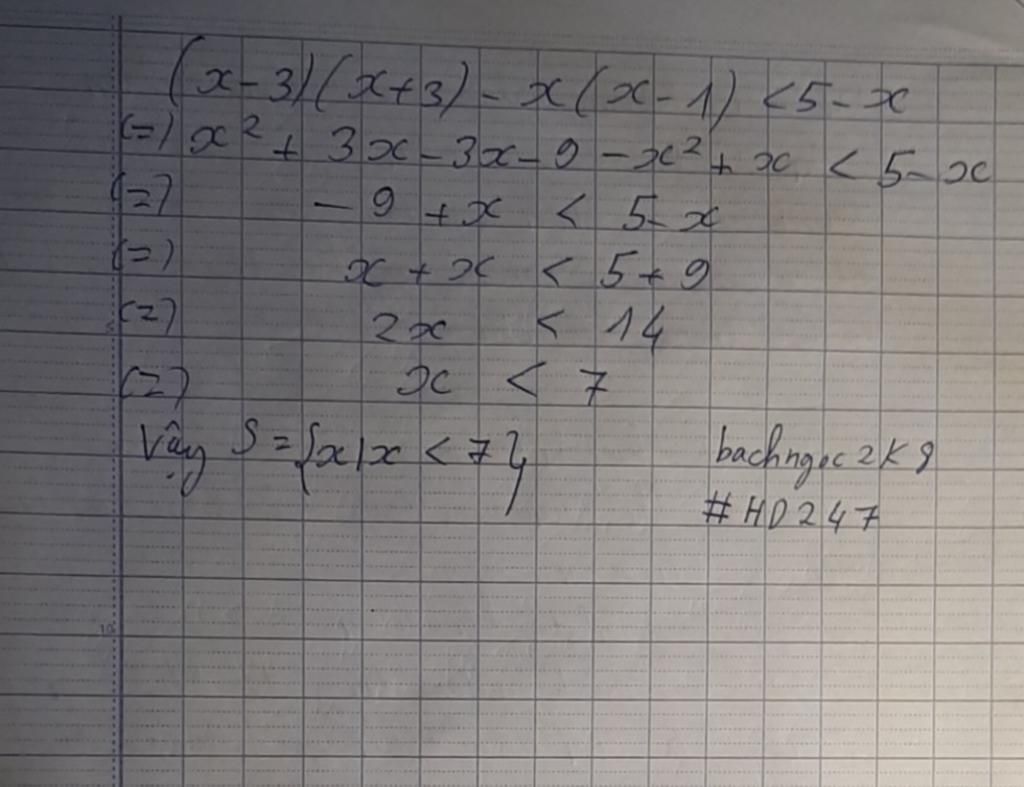 (x-3)(x+3) - x(x-1) < 5-x
(=) x² + 3x - 3x - 9 - x² + x < 5-x
(=) -9 + x < 5-x
(=) x + x < 5+9
(=) 2x < 14
(=) x < 7
Vậy S = {x|x < 7}
bachngọc2K9
#HD247